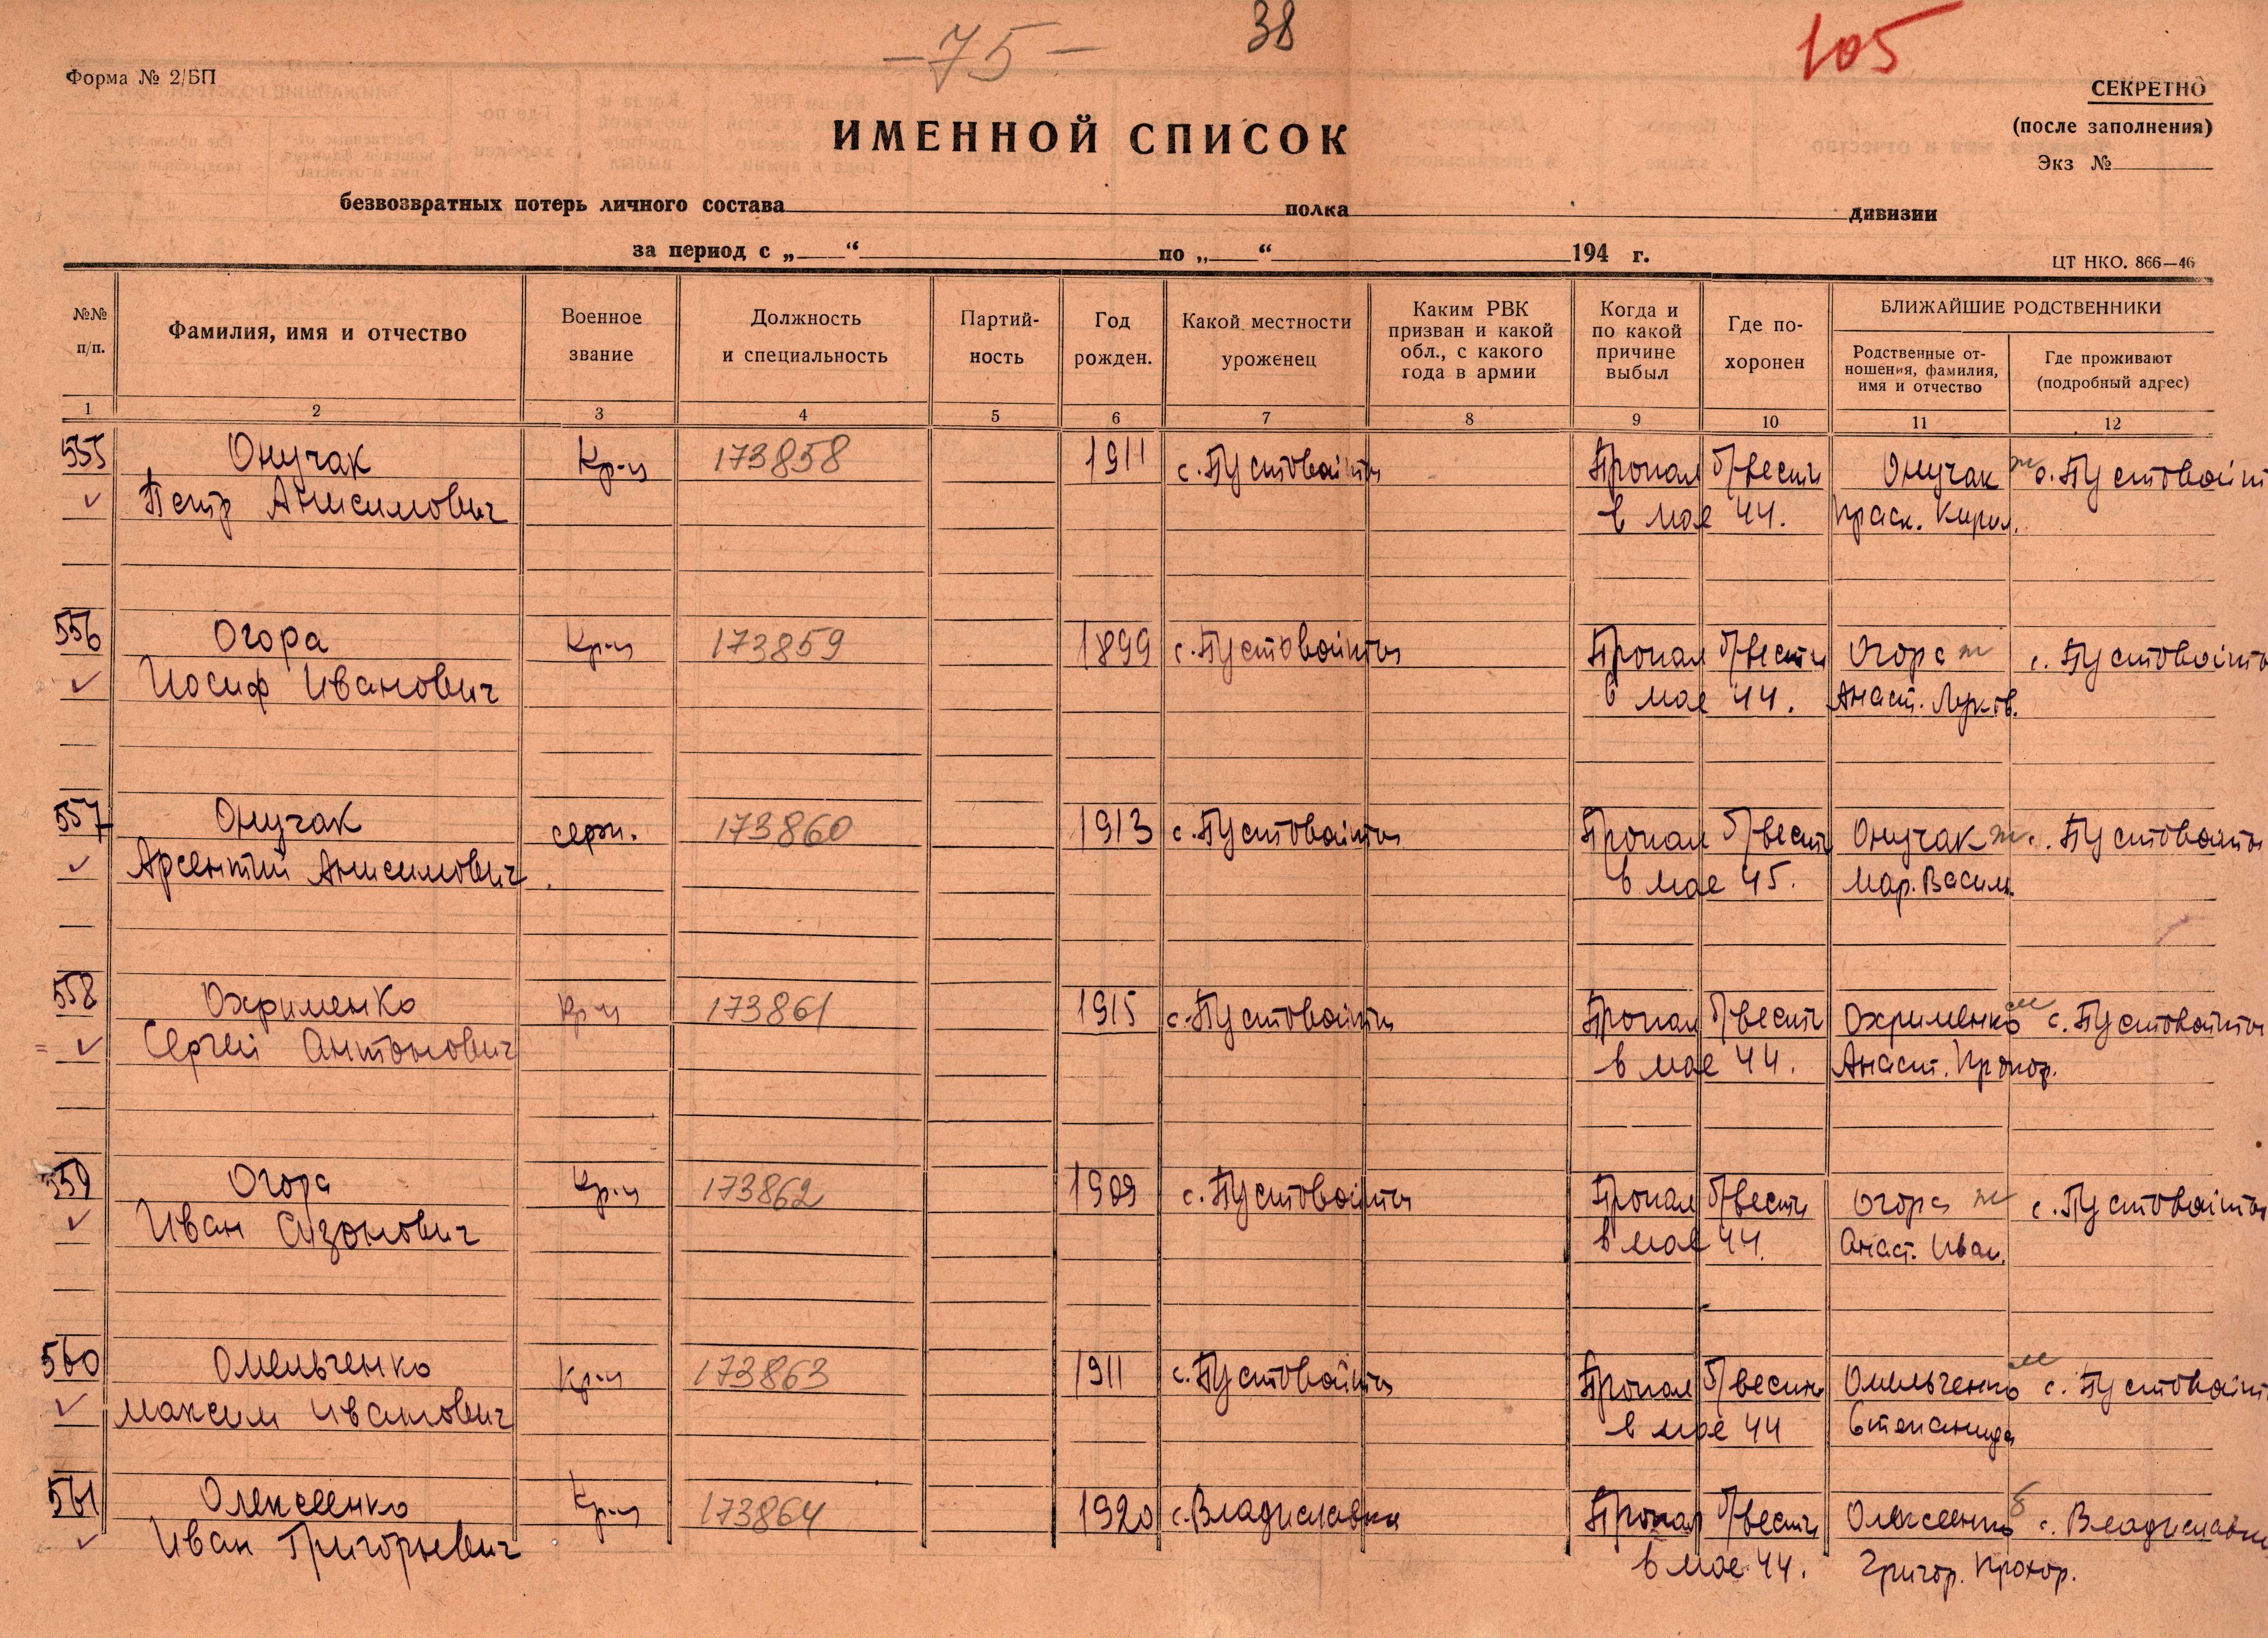 -75- 38 105
Форма № 2/БП
СЕКРЕТНО
(после заполнения)
Экз №
ИМЕННОЙ СПИСОК
безвозвратных потерь личного состава полка дивизии
за период с „ “ по „ “ 194 г.
ЦТ НКО. 866—46
№№ п/п.
Фамилия, имя и отчество
Военное звание
Должность и специальность
Партий-ность
Год рожден.
Какой местности уроженец
Каким РВК призван и какой обл., с какого года в армии
Когда и по какой причине выбыл
Где по-хоронен
БЛИЖАЙШИЕ РОДСТВЕННИКИ
Родственные от-ношения, фамилия, имя и отчество
Где проживают (подробный адрес)
1 2 3 4 5 6 7 8 9 10 11 12
555 Онучак Кр-ц 173858 1911 с. Пустовайты Пропал б/вести Онучак ж с. Пустовайт
Петр Анисимович в мае 44. Праск. Кирил.
556 Огора Кр-ц 173859 1899 с. Пустовайты Пропал б/вести Огора ж с. Пустовайты
Иосиф Иванович в мае 44. Анаст. Луков.
557 Онучак серж. 173860 1913 с. Пустовайты Пропал б/вести Онучак ж с. Пустовайты
Арсентий Анисимович в мае 45. Мар. Васил.
558 Охрименко Кр-ц 173861 1915 с. Пустовайты Пропал б/вести Охрименко м с. Пустовайты
Сергей Антонович в мае 44. Анаст. Прокоф.
559 Огора Кр-ц 173862 1909 с. Пустовайты Пропал б/вести Огора ж с. Пустовайты
Иван Сазонович в мае 44. Анаст. Иван.
560 Омельченко Кр-ц 173863 1911 с. Пустовайты Пропал б/вести Омельченко м с. Пустовайт
Максим Иванович в мае 44 Степанида
561 Олексеенко Кр-ц 173864 1920 с. Владиславка Пропал б/вести Олексеенко б с. Владиславка
Иван Григорьевич в мае 44. Григор. Прохор.